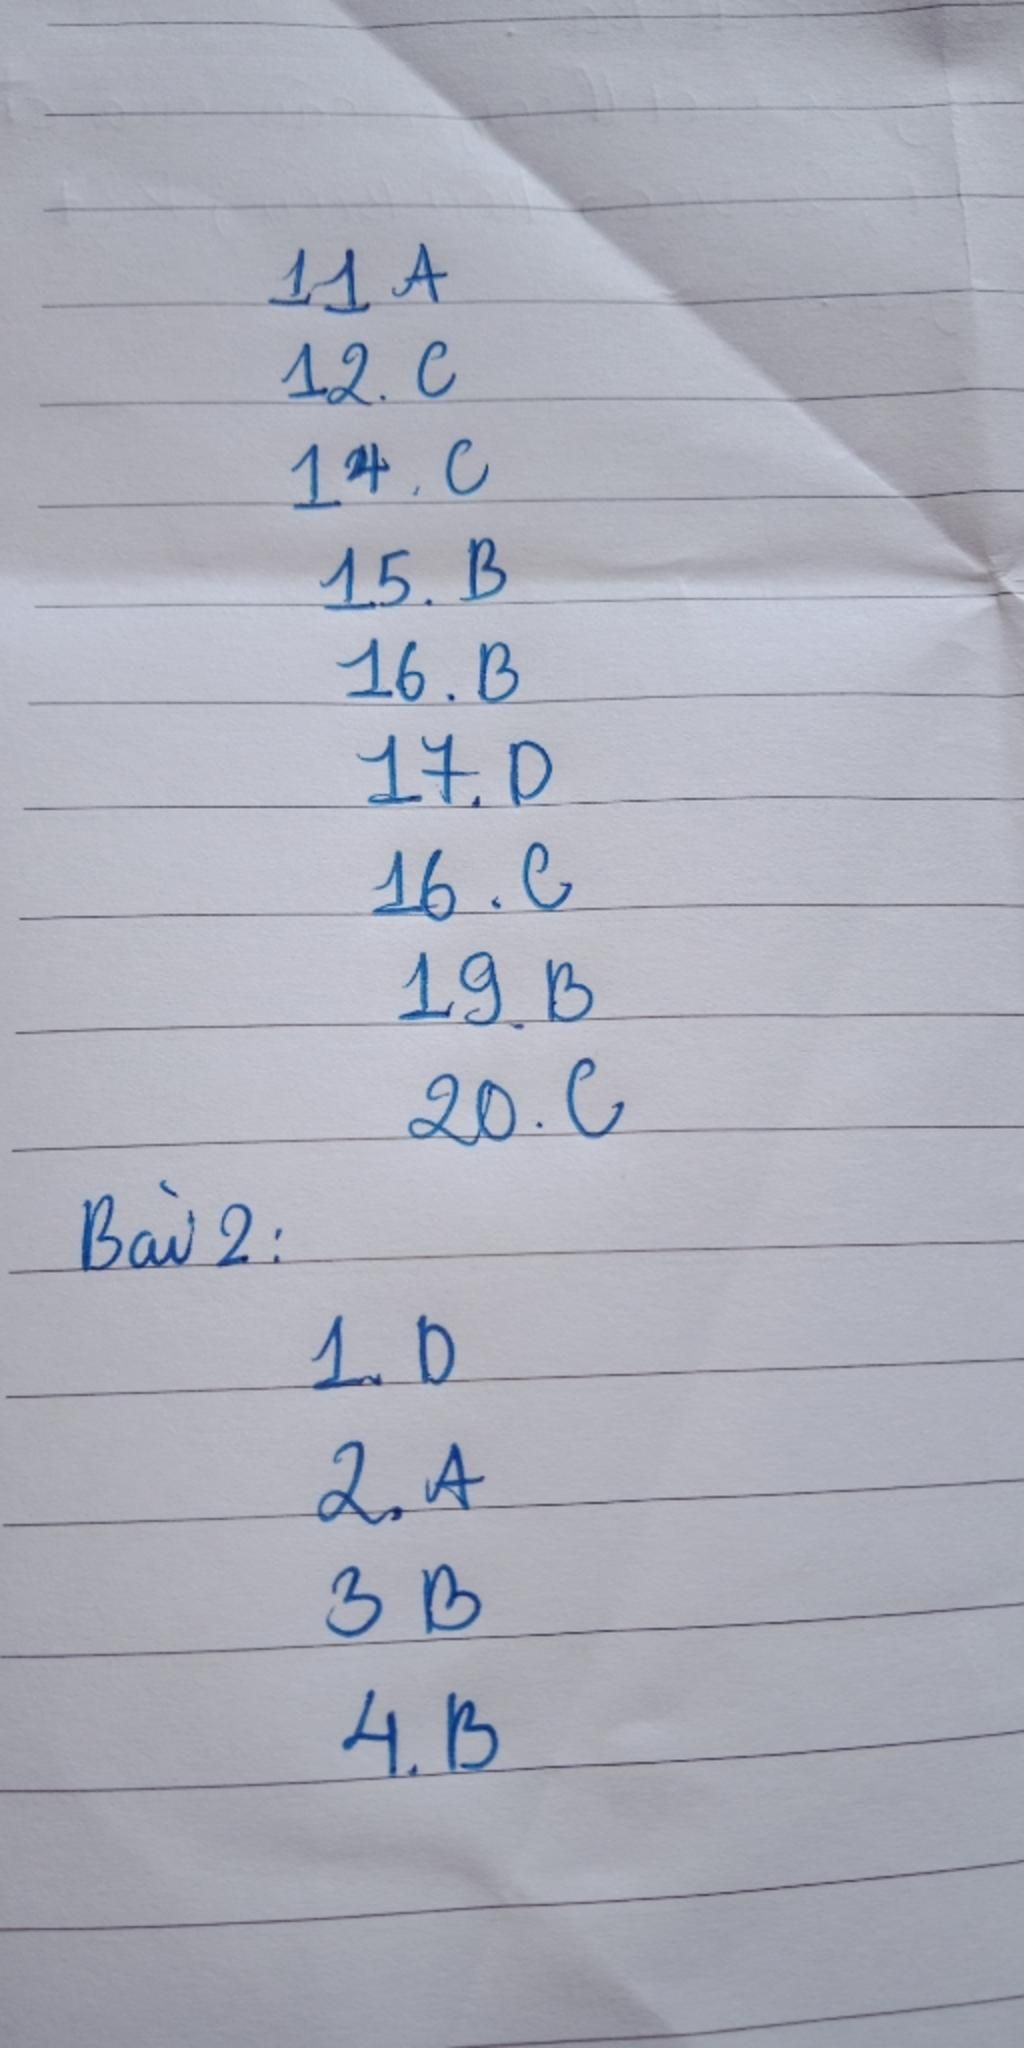 11 A
12. C
14. C
15. B
16. B
17. D
16. C
19. B
20. C
Bài 2:
1. D
2. A
3 B
4. B